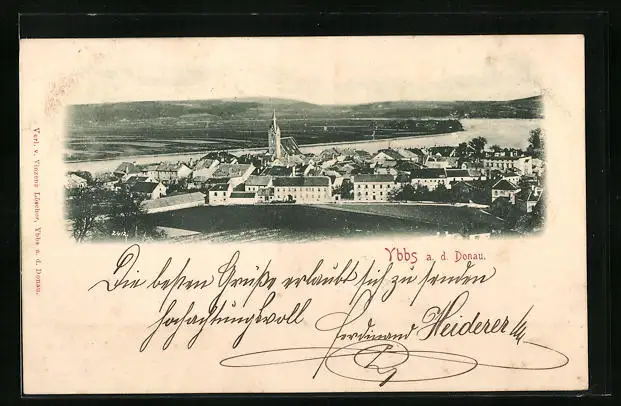 Verl. v. Vinzenz Löscher, Ybbs a. d. Donau.
2412
Ybbs a. d. Donau.
Die besten Grüße erlaubt sich zu senden
hochachtungsvoll
Ferdinand Heiderer